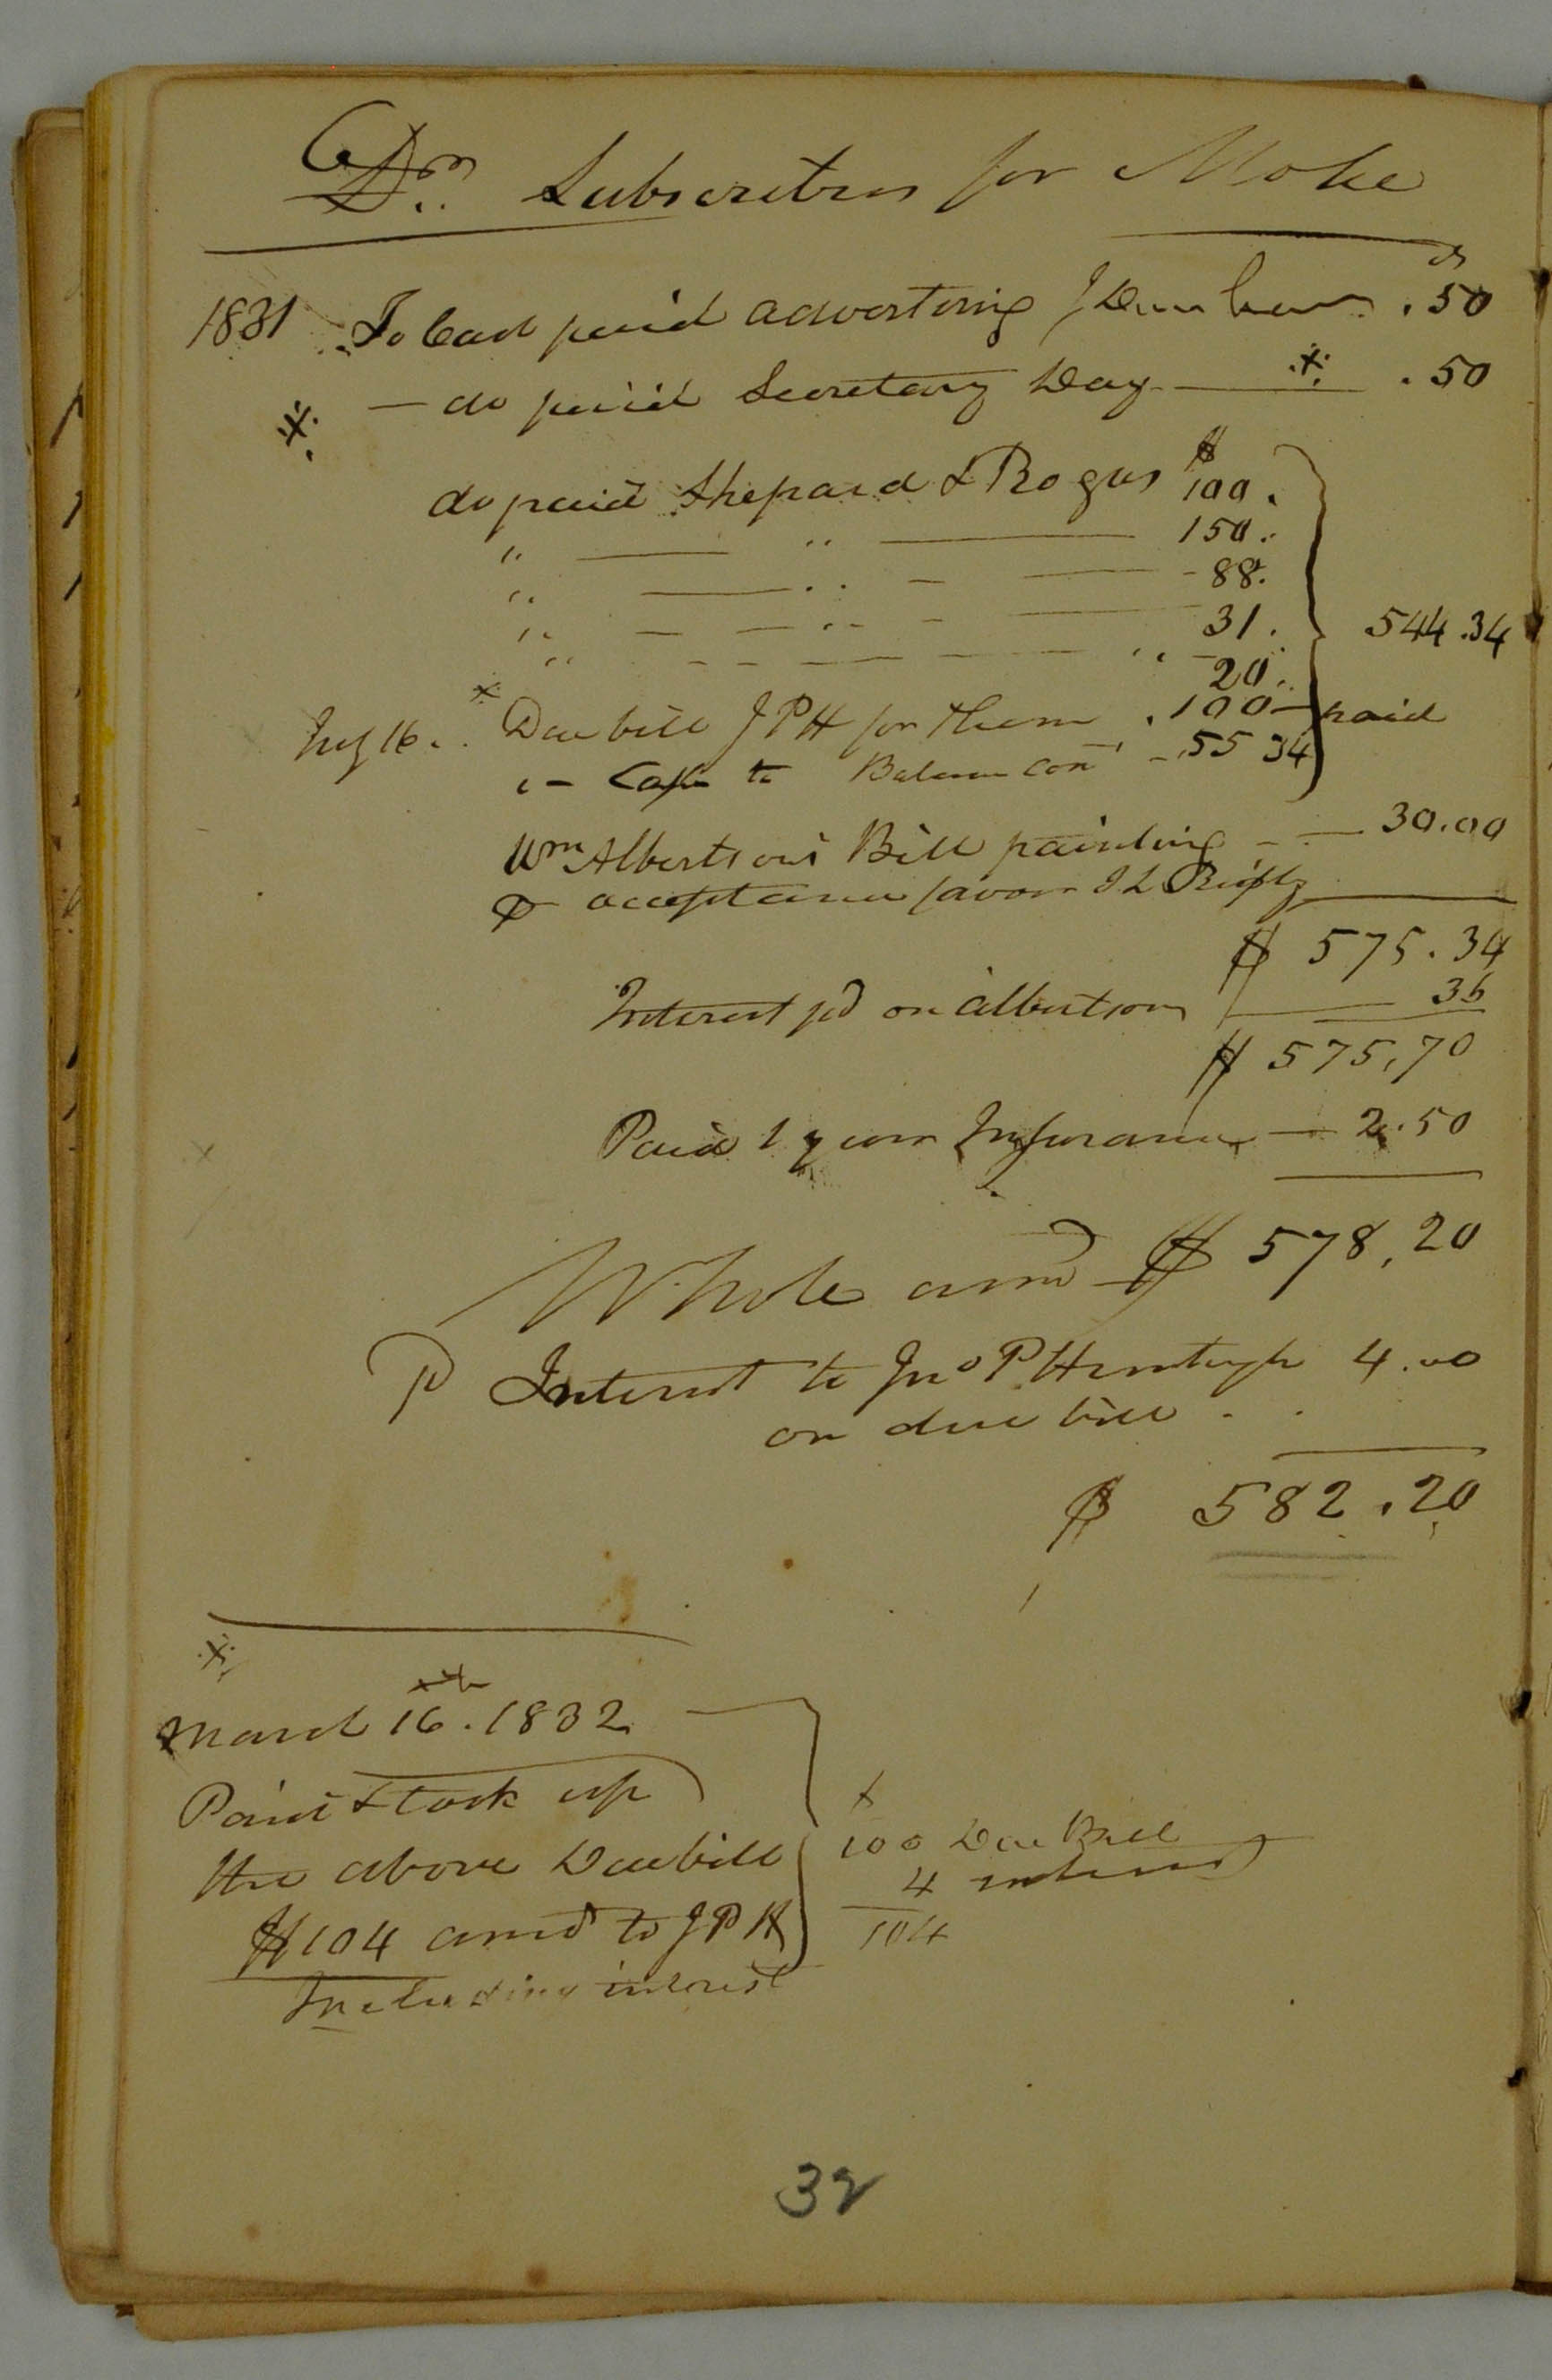 Dr. Subscribers for Mohe
1831 To Cash paid advertising J Dunham .50
— do paid Secretary Day — .50
do paid Shepard & Rogers $ 100.
" — " — 150.
" — " — 88.
" — " — 31. 544.34
" — " — 20.
Aug 16. Due bill J P H for them . 100 — paid
" — Cash to Balance Con — 55 34
Wm Albertsons Bill painting — 30.00
acceptance favor I L
$ 575.34
Interest pd on Albertsons 36
$ 575.70
Paid 1 year Insurance — 2.50
Whole amt $ 578.20
pd Interest to Jno P Huntington 4.00
on due bill
$ 582.20
March 16th. 1832
Paid & took up
the above Due bill 100 Due Bill
$104 amt to J P H 4 interest
104
Including interest
32